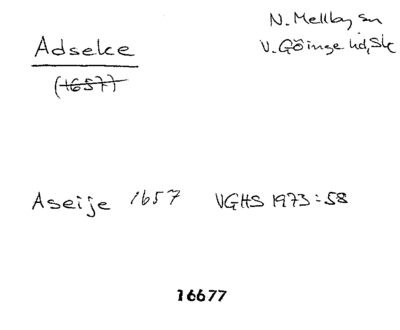 N. Mellby sn
Adseke
V. Göinge hd, Sk
(1657)
Aseije 1657 VGHS 1973:58
16677